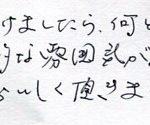 けましたら、何と
的な雰囲気が
おいしく頂きま